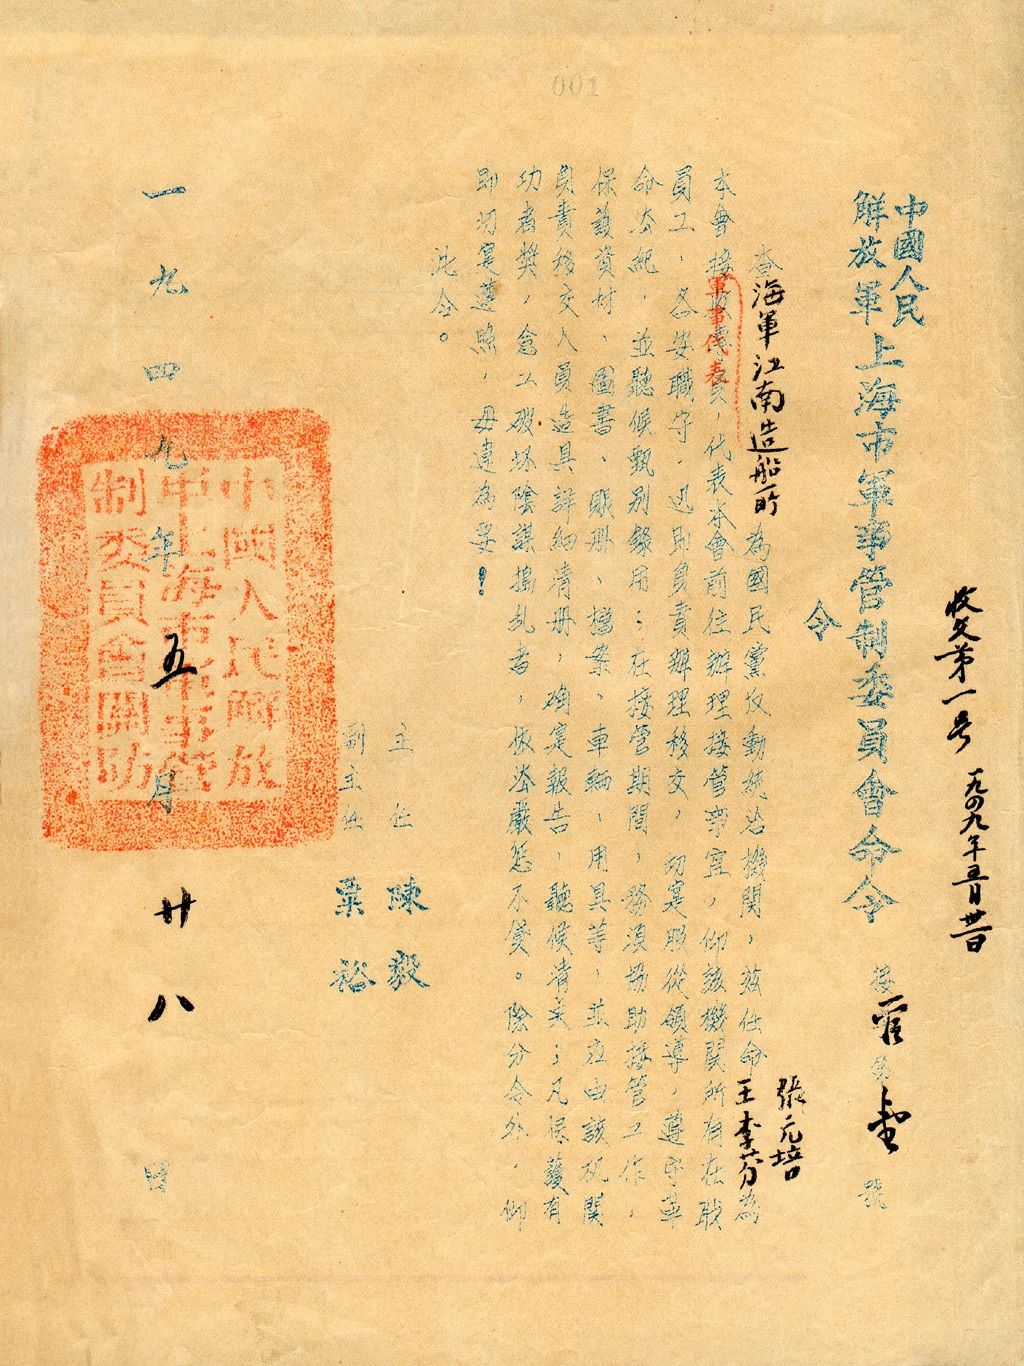 001
收文第一号 一九四九年五月廿八日
中國人民解放軍上海市軍事管制委員會命令
令
接管 字第 號
查海軍江南造船所為國民黨反動統治機關，茲任命張元培王李芬為
本會接收專員，代表本會前往辦理接管事宜，仰該機關所有在職
軍事代表
員工，各安職守，迅即負責辦理移交，切實服從領導，遵守革
命法紀，並聽候甄別錄用；在接管期間，務須協助接管工作，
保護資材、圖書、賬册、檔案、車輛、用具等，並应由該机関
負責移交人員造具詳細清册，确寔報告，聽候清美；凡保護有
功者獎，怠工破坏陰謀搗乱者，依法嚴惩不貸。除分令外，仰
即切寔遵照，毋違為要！
此令。
主任 陳毅
副主任 粟裕
一九四九年五月廿八日
中國人民解放軍上海市軍事管制委員會關防